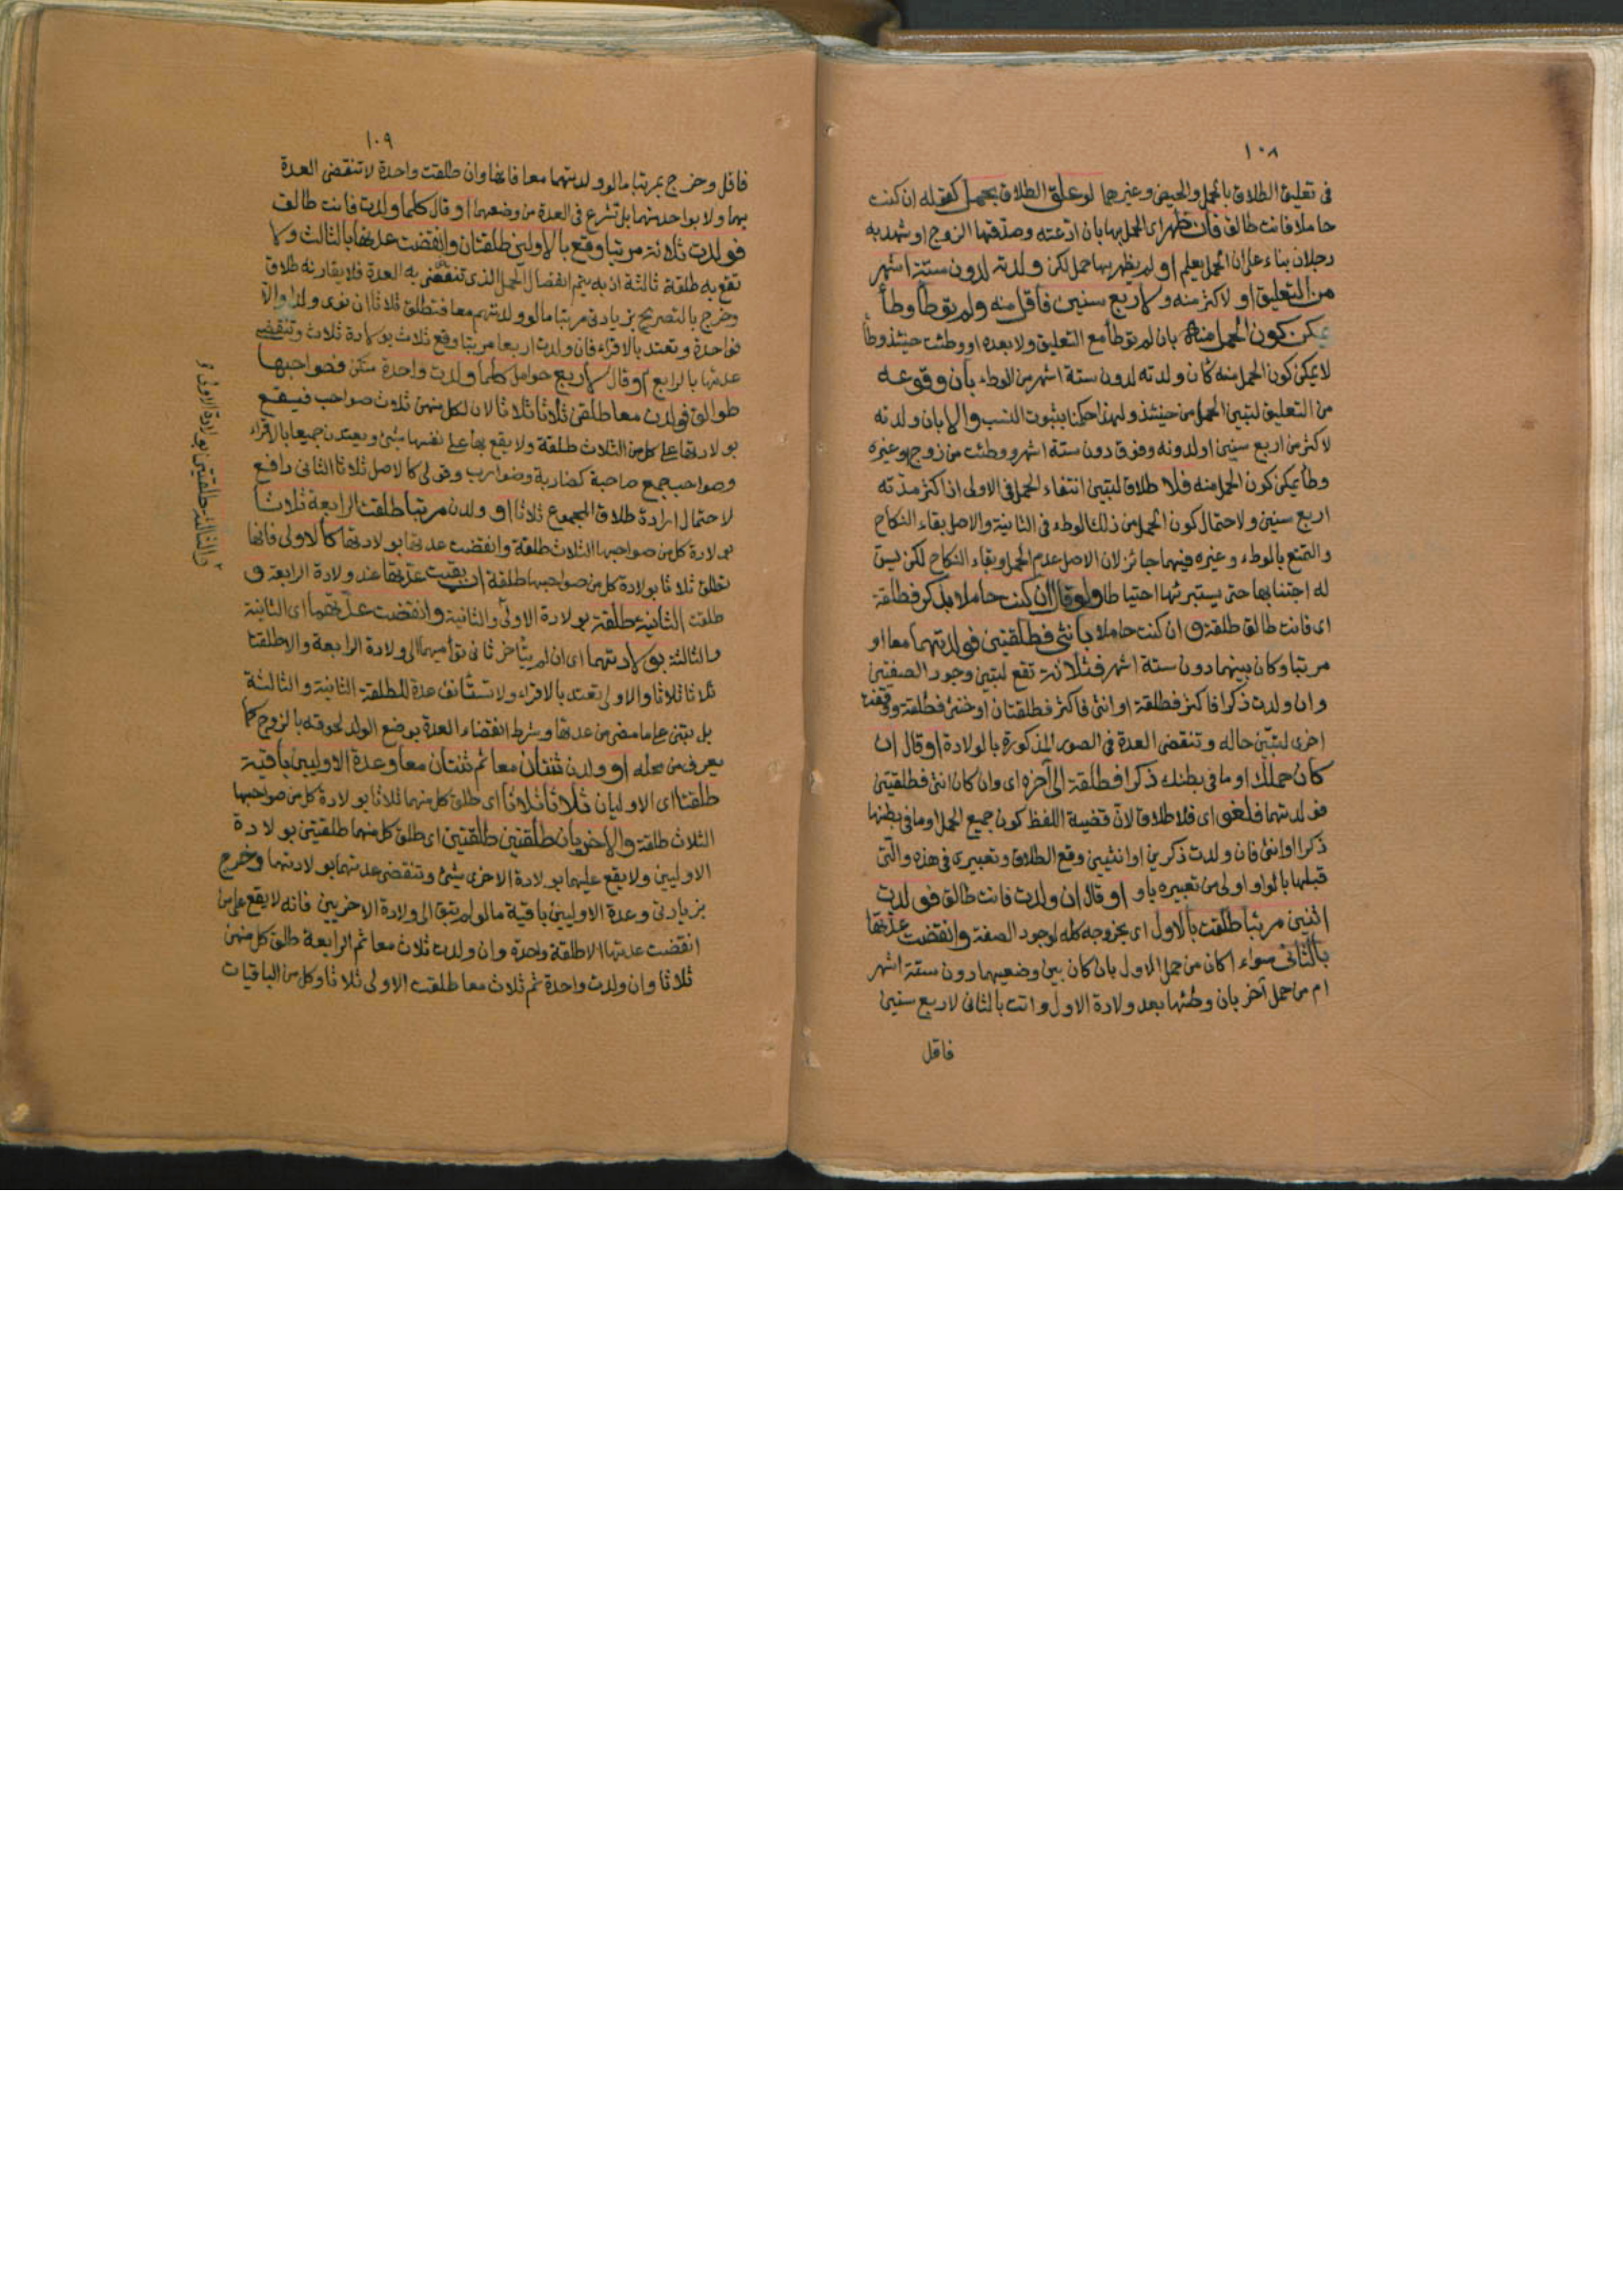 ١٠٨
فى تعليق الطلاق بالحمل والحيض وغيرهما لو علق الطلاق بحمل كقوله ان كنت
حاملا فانت طالق فان ظهر اى الحمل بها بان ادعته وصدقها الزوج او شهد به
رجلان بناء على ان الحمل يعلم او لم يظهر بها حمل لكن ولدته لدون ستة اشهر
من التعليق او لاكثر منه ولاربع سنين فاقل منه ولم توطأ وطأ
يمكن كون الحمل منه بان لم توطأ مع التعليق ولا بعده او وطئت حينئذ وطأ
لا يمكن كون الحمل منه كأن ولدته لدون ستة اشهر من الوطء بان وقوعه
من التعليق لتبين الحمل من حينئذ ولهذا حكمنا بثبوت النسب والا بان ولدته
لاكثر من اربع سنين او لدونه وفوق دون ستة اشهر ووطئت من زوج او غيره
وطأ يمكن كون الحمل منه فلا طلاق لتبين انتفاء الحمل فى الاولى اذ اكثر مدته
اربع سنين ولاحتمال كون الحمل من ذلك الوطء فى الثانية والاصل بقاء النكاح
والتمتع بالوطء وغيره فيهما جائز لان الاصل عدم الحمل وبقاء النكاح لكن يسن
له اجتنابها حتى يستبرئها احتياطا ولو قال ان كنت حاملا بذكر فطلقة
اى فانت طالق طلقة وان كنت حاملا بانثى فطلقتين فولدتهما معا او
مرتبا وكان بينهما دون ستة اشهر فثلاثة تقع لتبين وجود الصفتين
وان ولدت ذكرا فاكثر فطلقة او انثى فاكثر فطلقتان او خنثى فطلقة ووقفت
اخرى لتبين حاله وتنقضى العدة فى الصور المذكورة بالولادة او قال ان
كان حملك او ما فى بطنك ذكرا فطلقة الى آخره اى وان كان انثى فطلقتين
فولدتهما فلغو اى فلا طلاق لان قضية اللفظ كون جميع الحمل او ما فى بطنها
ذكرا او انثى فان ولدت ذكرين او انثيين وقع الطلاق وتعبيرى فى هذه والتى
قبلها بالواو اولى من تعبيره باو او قال ان ولدت فانت طالق فولدت
اثنين مرتبا طلقت بالاول اى بخروجه كله لوجود الصفة وانقضت عدتها
بالثانى سواء اكان من حمل الاول بان كان بين وضعيهما دون ستة اشهر
ام من حمل آخر بان وطئها بعد ولادة الاول واتت بالثانى لاربع سنين
فاقل
١٠٩
فاقل وخرج بمرتبا ما لو ولدتهما معا فانها وان طلقت واحدة لا تنقضى العدة
بهما ولا بواحد منهما بل تشرع فى العدة من وضعهما او قال كلما ولدت فانت طالق
فولدت ثلاثة مرتبا وقع بالاولين طلقتان وانقضت عدتها بالثالث ولا
تقع به طلقة ثالثة اذ به يتم انفصال الحمل الذى تنقضى به العدة فلا يقارنه طلاق
وخرج بالتصريح بزيادتى مرتبا ما لو ولدتهم معا فتطلق ثلاثا ان نوى ولدا والا
فواحدة وتعتد بالاقراء فان ولدت اربعا مرتبا وقع ثلاث بولادة ثلاث وتنقضى
عدتها بالرابع او قال لاربع حوامل كلما ولدت واحدة منكن فصواحبها
طوالق فولدن معا طلقن ثلاثا ثلاثا لان لكل منهن ثلاث صواحب فيقع
بولادتها على كل من الثلاث طلقة ولا يقع بها على نفسها شئ ويعتددن جميعا بالاقراء
وصواحب جمع صاحبة كضاربة وضوارب وقولى كالاصل ثلاثا الثانى دافع
لاحتمال ارادة طلاق المجموع ثلاثا او ولدن مرتبا طلقت الرابعة ثلاثا
بولادة كل من صواحبها الثلاث طلقة وانقضت عدتها بولادتها كالاولى فانها
تطلق ثلاثا بولادة كل من صواحبها طلقة ان بقيت عدتها عند ولادة الرابعة و
طلقت الثانية طلقة بولادة الاولى والثانية وانقضت عدتهما اى الثانية
والثالثة بولادتهما اى ان لم يتأخر ثانى توأميهما الى ولادة الرابعة والا طلقتا
ثلاثا ثلاثا والاولى تعتد بالاقراء ولا تستأنف عدة للطلقة الثانية والثالثة
بل تبنى على ما مضى من عدتها وشرط انقضاء العدة بوضع الولد لحوقه بالزوج كما
يعرف من محله او ولدن ثنتان معا ثم ثنتان معا وعدة الاوليين باقية
طلقتا اى الاوليان ثلاثا ثلاثا اى طلق كل منهما ثلاثا بولادة كل من صواحبها
الثلاث طلقة والاخريان طلقتين طلقتين اى طلق كل منهما طلقتين بولادة
الاوليين ولا يقع عليهما بولادة الاخرى شئ وتنقضى عدتهما بولادتهما وخرج
بزيادتى وعدة الاوليين باقية ما لو لم تبق الى ولادة الاخريين فانه لا يقع على من
انقضت عدتها الا طلقة واحدة وان ولدت ثلاث معا ثم الرابعة طلق كل منهن
ثلاثا وان ولدت واحدة ثم ثلاث معا طلقت الاولى ثلاثا وكل من الباقيات
والثالثة طلقتين بولادة الاولى و